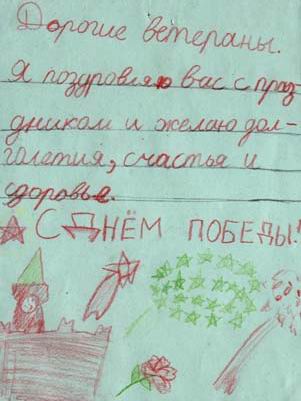 Дорогие ветераны.
Я поздровляю вас с праз-
дником и желаю дол-
голетия, счастья и
здоровье.
С ДНЁМ ПОБЕДЫ!